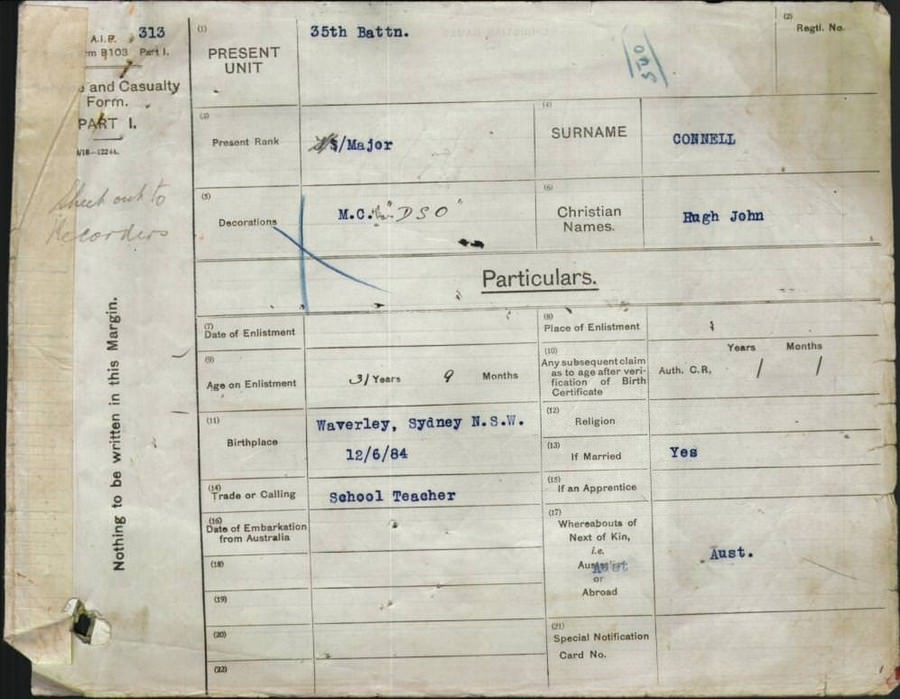 A.I.F. 313
m B103 Part I.
and Casualty
Form.
PART I.
Check out to
Recorders
Nothing to be written in this Margin.
(1)
PRESENT
UNIT
35th Battn.
(2)
Regtl. No.
(3)
Present Rank
/Major
(4)
SURNAME
CONNELL
(5)
Decorations
M.C. "DSO"
(6)
Christian
Names.
Hugh John
Particulars.
(7)
Date of Enlistment
(8)
Place of Enlistment
(9)
Age on Enlistment
31 Years 9 Months
(10)
Any subsequent claim
as to age after veri-
fication of Birth
Certificate
Auth. C.R.
Years Months
/ /
(11)
Birthplace
Waverley, Sydney N.S.W.
12/6/84
(12)
Religion
(13)
If Married
Yes
(14)
Trade or Calling
School Teacher
(15)
If an Apprentice
(16)
Date of Embarkation
from Australia
(17)
Whereabouts of
Next of Kin,
i.e.
or
Abroad
Aust.
(18)
(19)
(20)
(21)
Special Notification
Card No.
(22)